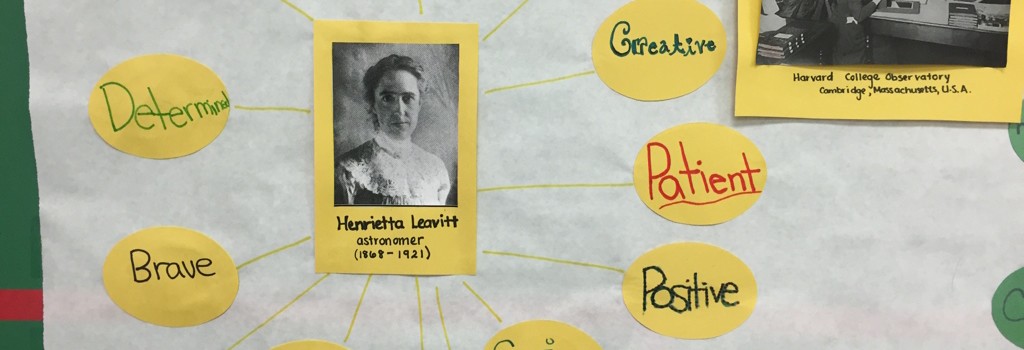 Creative
Harvard College Observatory
Cambridge, Massachusetts, U.S.A.
Determined
Patient
Henrietta Leavitt
astronomer
(1868-1921)
Brave
Positive